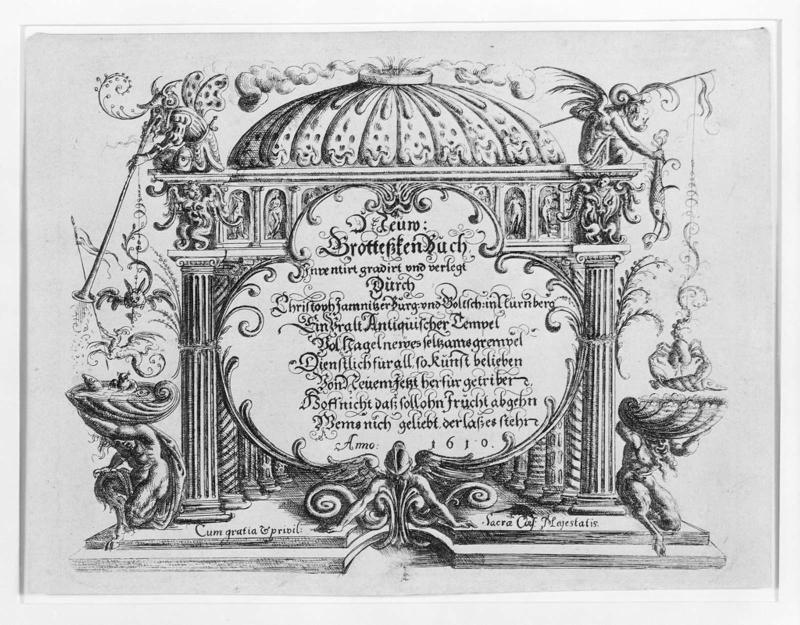 Neuw:
Grotteßken Buch
Inventirt gradirt vnd verlegt
Durch
Christoph Jamnitzer Burg: vnd Goltsch: in Nürnberg
Ein Vralt Antiquischer Tempel
Vol Nagelnewes seltzams grempel
Dienstlich für all, so Kunst belieben
Von Neuem Jetzt herfür getriben
Hoff nicht daß soll ohn Frücht abgehn
Wems nich geliebt, der laß es stehn
Anno: 1610.
Cum gratia & privil:
Sacrae Caes Majestatis.